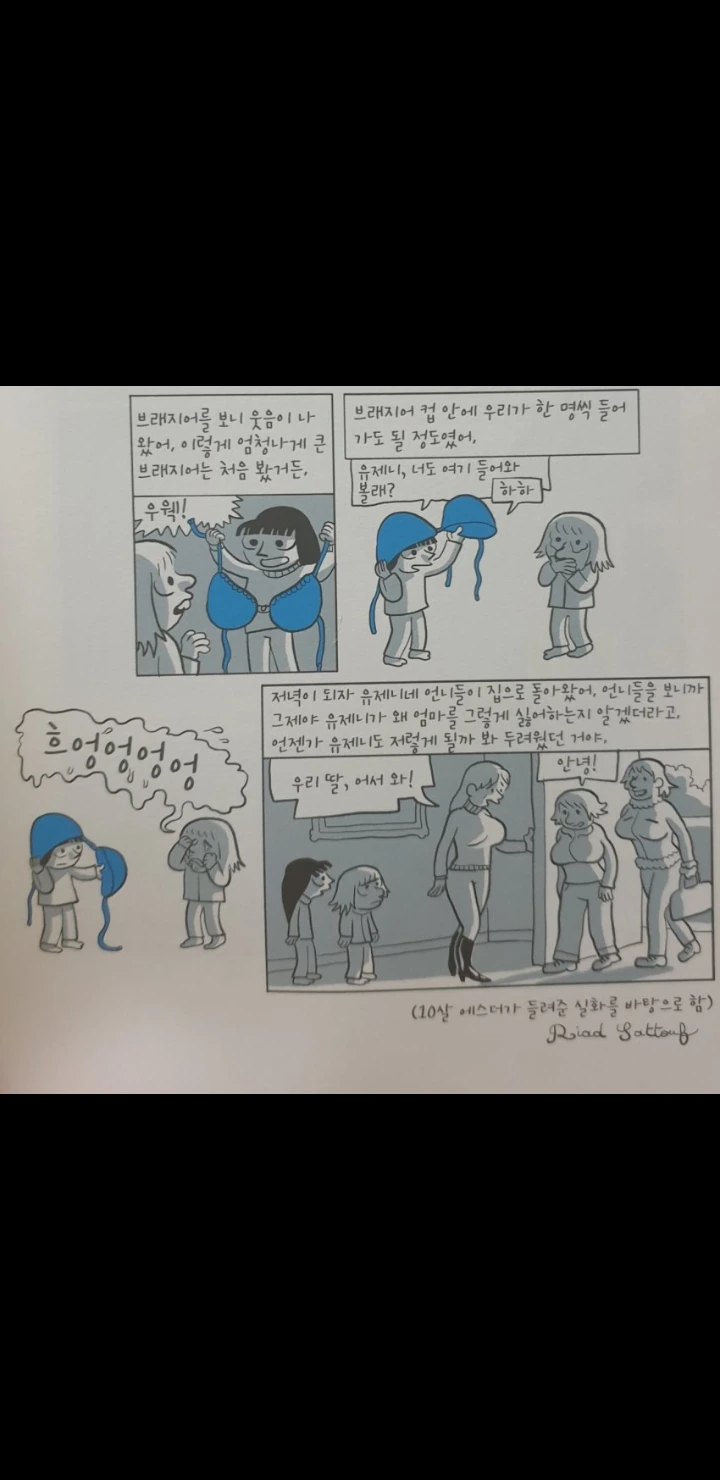 브래지어를 보니 웃음이 나
왔어, 이렇게 엄청나게 큰
브래지어는 처음 봤거든,
우웩!
브래지어 컵 안에 우리가 한 명씩 들어
가도 될 정도였어,
유제니, 너도 여기 들어와
볼래?
하하
흐엉엉엉엉
저녁이 되자 유제니네 언니들이 집으로 돌아왔어, 언니들을 보니까
그제야 유제니가 왜 엄마를 그렇게 싫어하는지 알겠더라고,
언젠가 유제니도 저렇게 될까 봐 두려웠던 거야,
우리 딸, 어서 와!
안녕!
(10살 에스더가 들려준 실화를 바탕으로 함)
Riad Sattouf